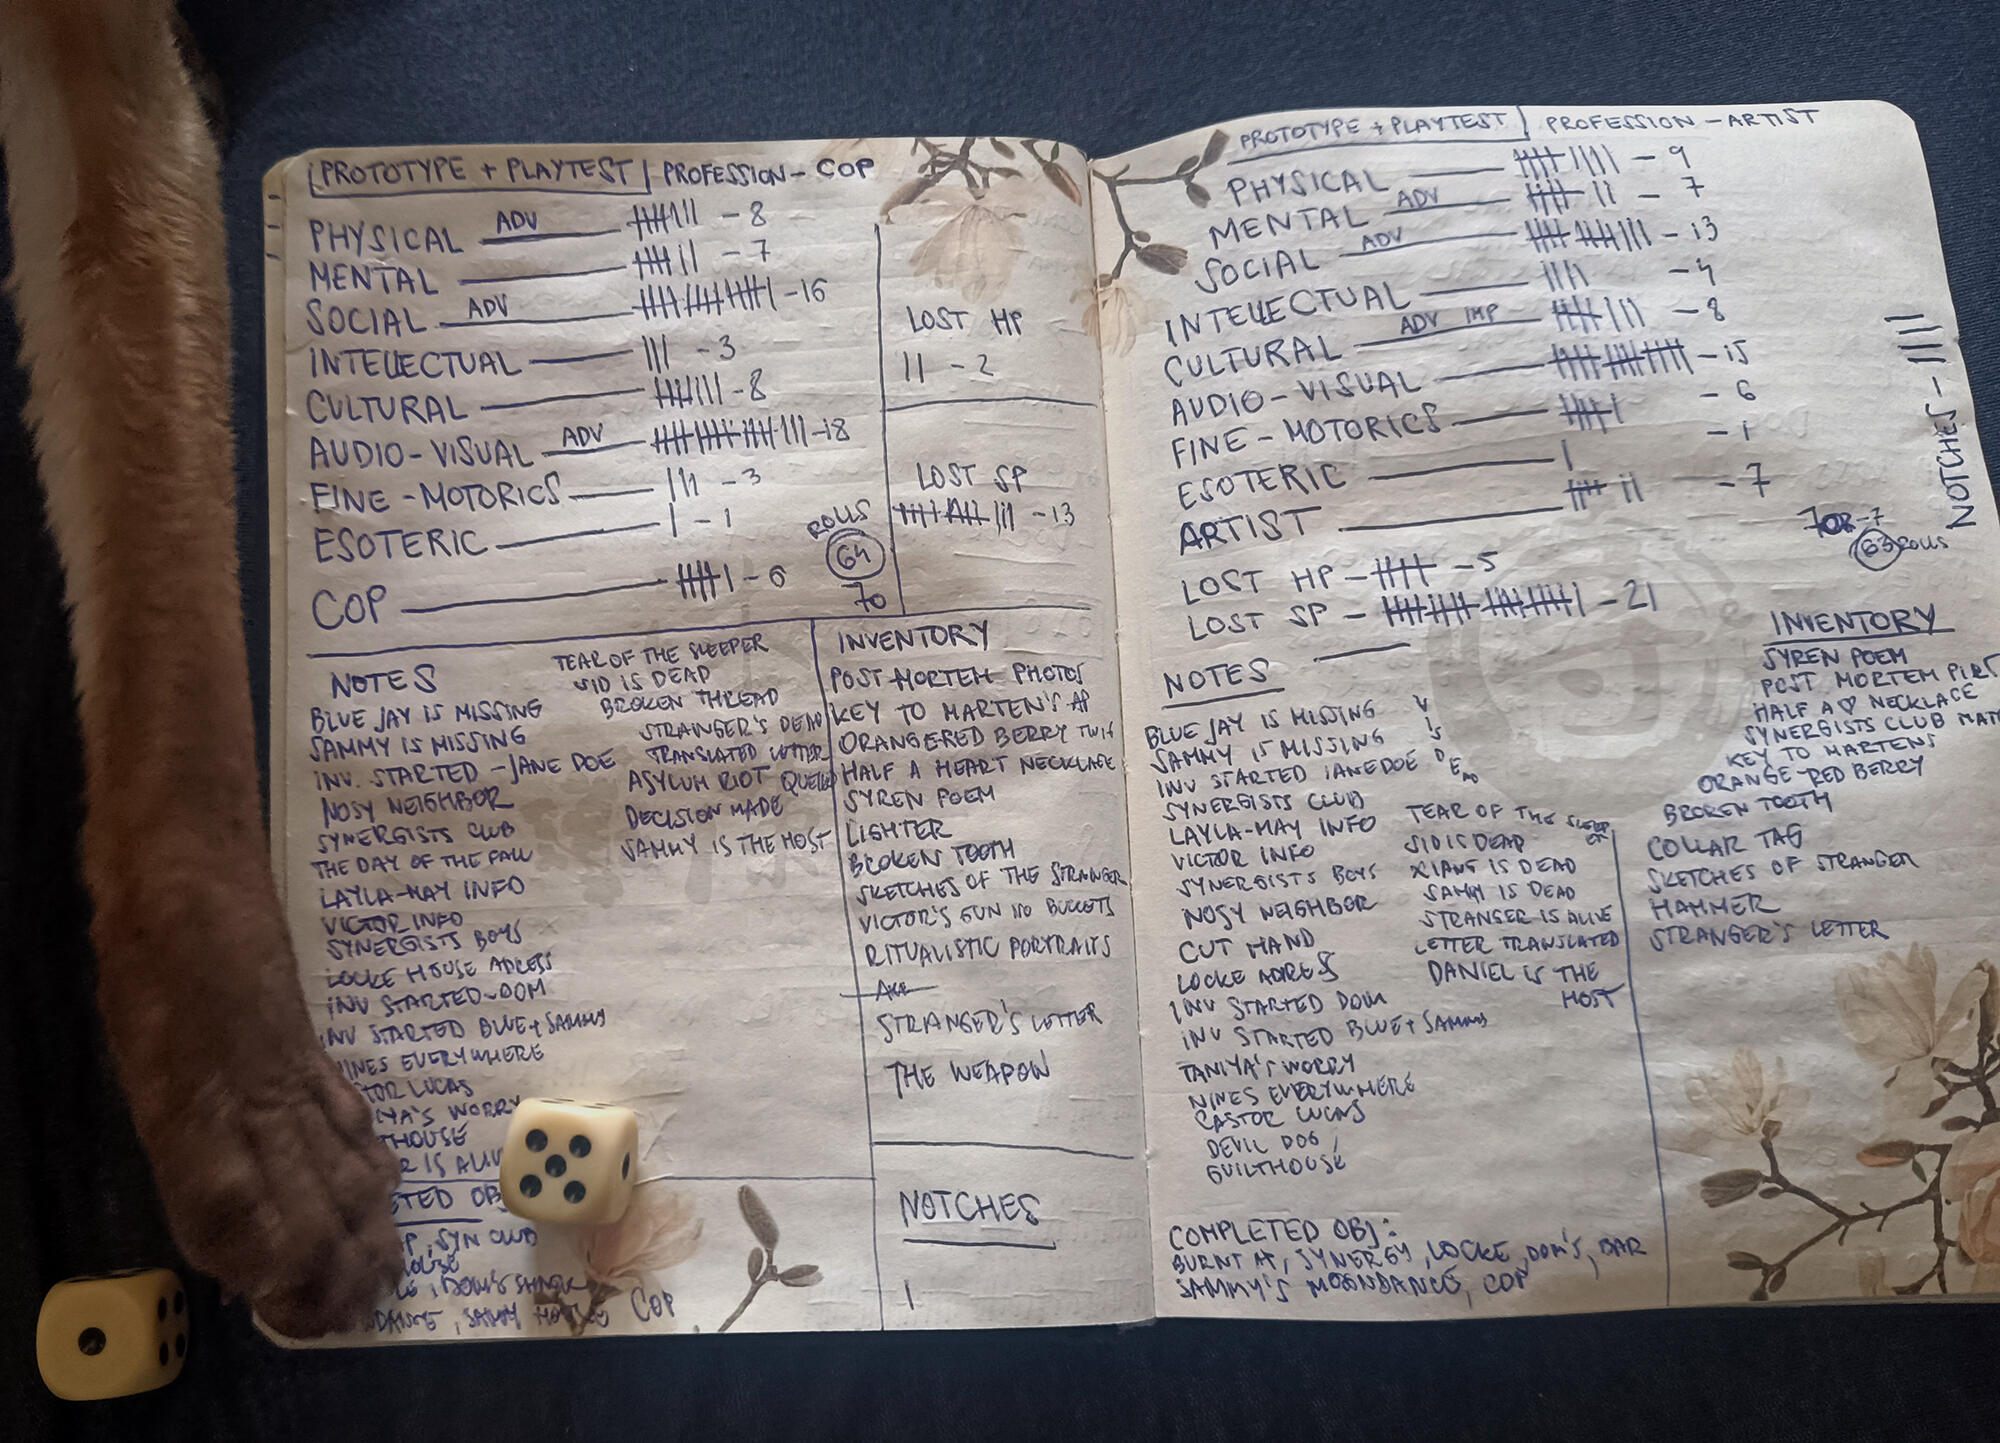 PROTOTYPE + PLAYTEST | PROFESSION - COP
PHYSICAL ADV - 8
MENTAL - 7
SOCIAL ADV - 16
INTELLECTUAL - 3
CULTURAL - 8
AUDIO-VISUAL ADV - 18
FINE-MOTORICS - 3
ESOTERIC - 1
COP - 6
ROLLS
64
70
LOST HP
- 2
LOST SP
- 13
NOTES
BLUE JAY IS MISSING
SAMMY IS MISSING
INV. STARTED - JANE DOE
NOSY NEIGHBOR
SYNERGISTS CLUB
THE DAY OF THE FALL
LAYLA-MAY INFO
VICTOR INFO
SYNERGISTS BOYS
LOCKE HOUSE ADRESS
INV STARTED - DOM
INV STARTED BLUE + SAMMY
NINES EVERYWHERE
LUCAS
WORRY
IS
TEAR OF THE SLEEPER
SID IS DEAD
BROKEN THREAD
STRANGER'S DEAD
TRANSLATED LETTER
ASYLUM RIOT
DECISION MADE
SAMMY IS THE HOST
SYN CLUB
DOM'S
SAMMY COP
INVENTORY
POST MORTEM PHOTOS
KEY TO MARTEN'S AP
ORANGE-RED BERRY TWIG
HALF A HEART NECKLACE
SYREN POEM
LIGHTER
BROKEN TOOTH
SKETCHES OF THE STRANGER
VICTOR'S GUN NO BULLETS
RITUALISTIC PORTRAITS
STRANGER'S LETTER
THE WEAPON
NOTCHES
PROTOTYPE + PLAYTEST | PROFESSION - ARTIST
PHYSICAL - 9
MENTAL ADV - 7
SOCIAL ADV - 13
INTELLECTUAL - 4
CULTURAL ADV IMP - 8
AUDIO-VISUAL - 15
FINE-MOTORICS - 6
ESOTERIC - 1
ARTIST - 7
- 7
63 ROLLS
NOTCHES -
LOST HP - 5
LOST SP - 21
NOTES
BLUE JAY IS MISSING
SAMMY IS MISSING
INV STARTED JANE DOE
SYNERGISTS CLUB
LAYLA-MAY INFO
VICTOR INFO
SYNERGISTS BOYS
NOSY NEIGHBOR
CUT HAND
LOCKE ADRESS
INV STARTED DOM
INV STARTED BLUE + SAMMY
TANIYA'S WORRY
NINES EVERYWHERE
CASTOR LUCAS
DEVIL DOG
GUILTHOUSE
V IS DEAD
TEAR OF THE SLEEPER
SID IS DEAD
XIANG IS DEAD
SAMMY IS DEAD
STRANGER IS ALIVE
LETTER TRANSLATED
DANIEL IS THE
HOST
INVENTORY
SYREN POEM
POST MORTEM
HALF A ♡ NECKLACE
SYNERGISTS CLUB
KEY TO MARTENS
ORANGE-RED BERRY
BROKEN TOOTH
COLLAR TAG
SKETCHES OF STRANGER
HAMMER
STRANGER'S LETTER
COMPLETED OBJ:
BURNT AP, SYNERGY, LOCKE, DOM'S, BAR
SAMMY'S MOONDANCE, COP